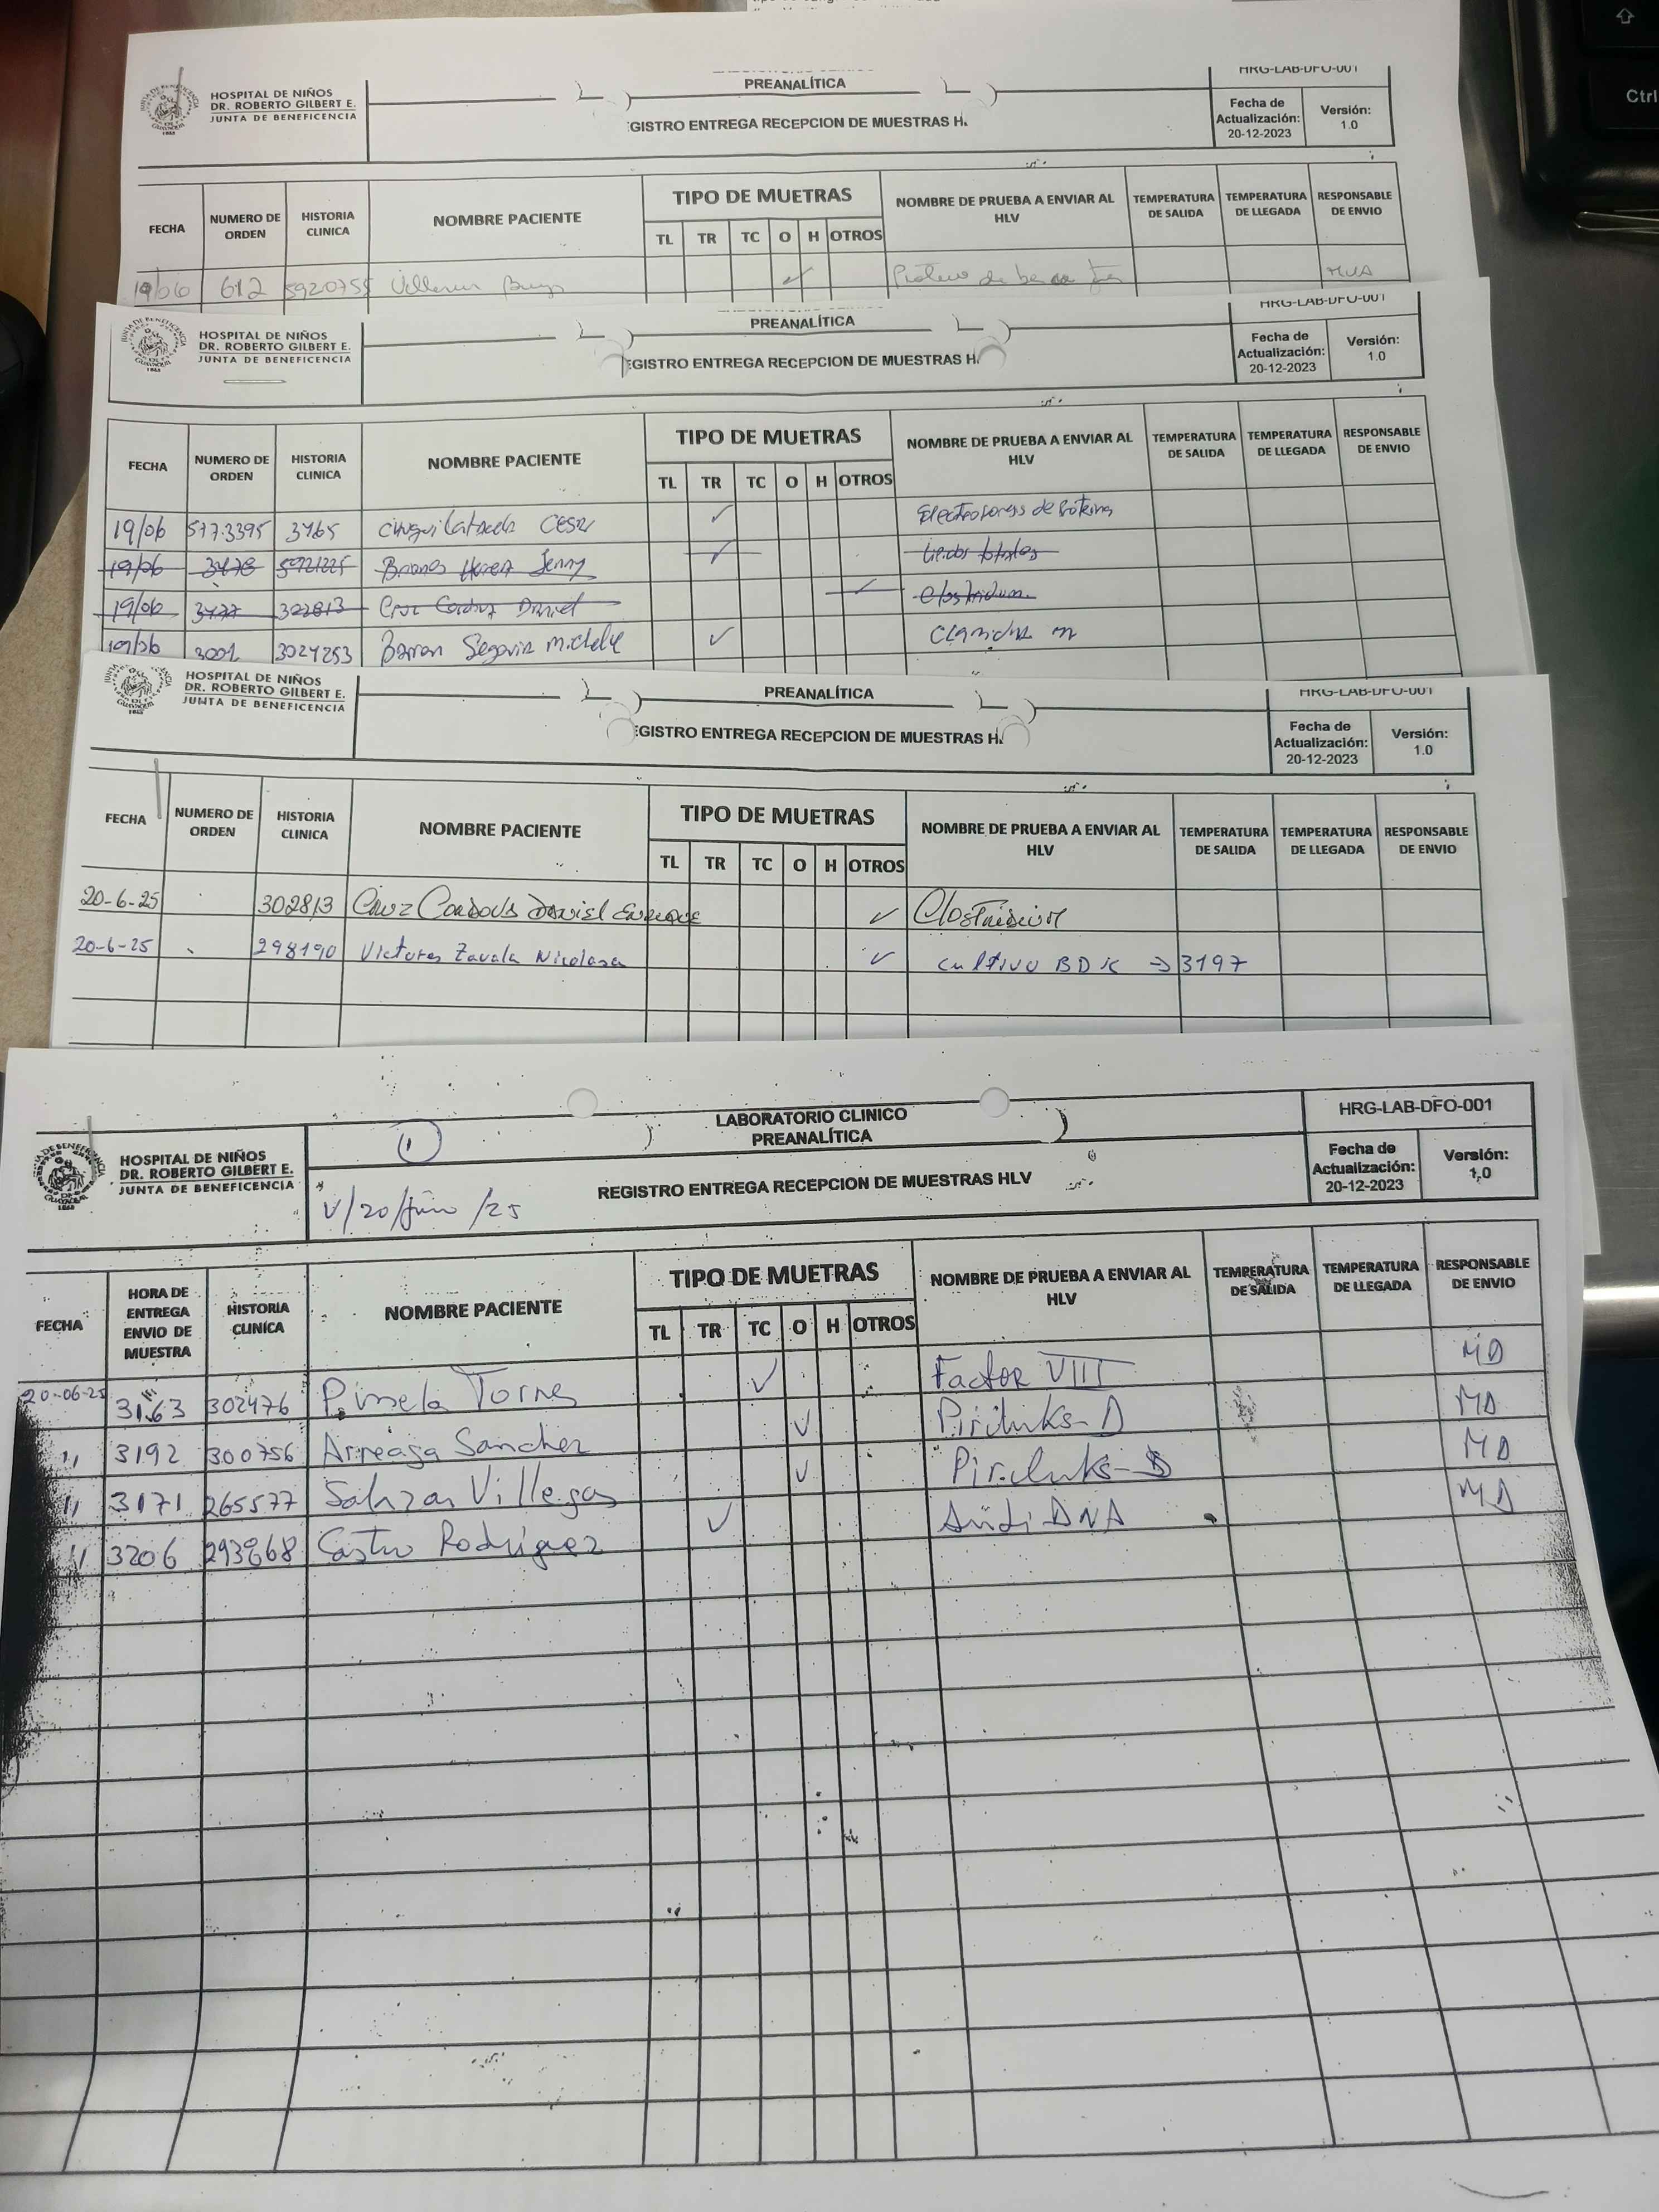 Ctrl
HOSPITAL DE NIÑOS
DR. ROBERTO GILBERT E.
JUNTA DE BENEFICENCIA
PREANALÍTICA
GISTRO ENTREGA RECEPCION DE MUESTRAS H
HRG-LAB-DFO-001
Fecha de Actualización: 20-12-2023
Versión: 1.0
FECHA NUMERO DE ORDEN HISTORIA CLINICA NOMBRE PACIENTE TIPO DE MUETRAS NOMBRE DE PRUEBA A ENVIAR AL HLV TEMPERATURA DE SALIDA TEMPERATURA DE LLEGADA RESPONSABLE DE ENVIO
TL TR TC O H OTROS
19/06 612 5920755 ✓
HOSPITAL DE NIÑOS
DR. ROBERTO GILBERT E.
JUNTA DE BENEFICENCIA
PREANALÍTICA
EGISTRO ENTREGA RECEPCION DE MUESTRAS H
HRG-LAB-DFO-001
Fecha de Actualización: 20-12-2023
Versión: 1.0
FECHA NUMERO DE ORDEN HISTORIA CLINICA NOMBRE PACIENTE TIPO DE MUETRAS NOMBRE DE PRUEBA A ENVIAR AL HLV TEMPERATURA DE SALIDA TEMPERATURA DE LLEGADA RESPONSABLE DE ENVIO
TL TR TC O H OTROS
19/06 577.3395 3465 ✓
19/06 3478 Jenny ✓
19/06 3477 302813 Cruz Daniel ✓ Clostridium
19/06 3001 3024253 Barran Segovia ✓
HOSPITAL DE NIÑOS
DR. ROBERTO GILBERT E.
JUNTA DE BENEFICENCIA
PREANALÍTICA
EGISTRO ENTREGA RECEPCION DE MUESTRAS H
HRG-LAB-DFO-001
Fecha de Actualización: 20-12-2023
Versión: 1.0
FECHA NUMERO DE ORDEN HISTORIA CLINICA NOMBRE PACIENTE TIPO DE MUETRAS NOMBRE DE PRUEBA A ENVIAR AL HLV TEMPERATURA DE SALIDA TEMPERATURA DE LLEGADA RESPONSABLE DE ENVIO
TL TR TC O H OTROS
20-6-25 302813 Cruz Cordova Daniel Enrique ✓
20-6-25 298190 Victores Zavala Nicolasa ✓ cultivo BDK → 3197
HOSPITAL DE NIÑOS
DR. ROBERTO GILBERT E.
JUNTA DE BENEFICENCIA
1
V/20/Junio/25
LABORATORIO CLINICO
PREANALÍTICA
REGISTRO ENTREGA RECEPCION DE MUESTRAS HLV
HRG-LAB-DFO-001
Fecha de Actualización: 20-12-2023
Versión: 1.0
FECHA HORA DE ENTREGA ENVIO DE MUESTRA HISTORIA CLINICA NOMBRE PACIENTE TIPO DE MUETRAS NOMBRE DE PRUEBA A ENVIAR AL HLV TEMPERATURA DE SALIDA TEMPERATURA DE LLEGADA RESPONSABLE DE ENVIO
TL TR TC O H OTROS
20-06-25 3163 302476 Pimela Torres ✓ Factor VIII MD
11 3192 300756 Arreaga Sanchez ✓ Pirilinks-D MD
11 3171 265577 Salazar Villegas ✓ MD
11 3206 Castro Rodriguez ✓ Anti-DNA MD